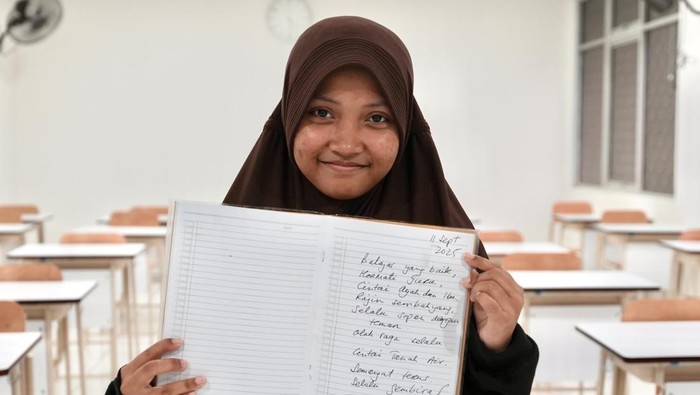 11 Sept
2025
Belajar yang baik,
Hormati Guru,
Cintai Ayah dan Ibu
Rajin sembahyang,
Selalu sopan dengan
teman
olah raga selalu
Cintai Tanah Air.
Semangat terus
Selalu Gembira